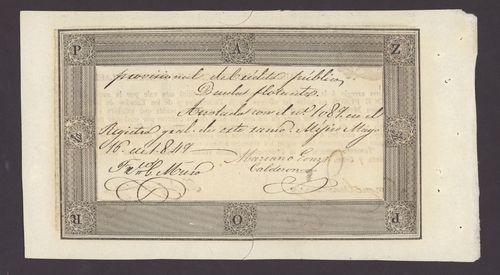 P A Z
provisional de Crédito público,
Deudas flotantes.
Anotados con el nº 1087. en el
Registro gral. de este ramo. Mejico Mayo
16. de 1.847
Mariano Gonz
Calderon
R O P